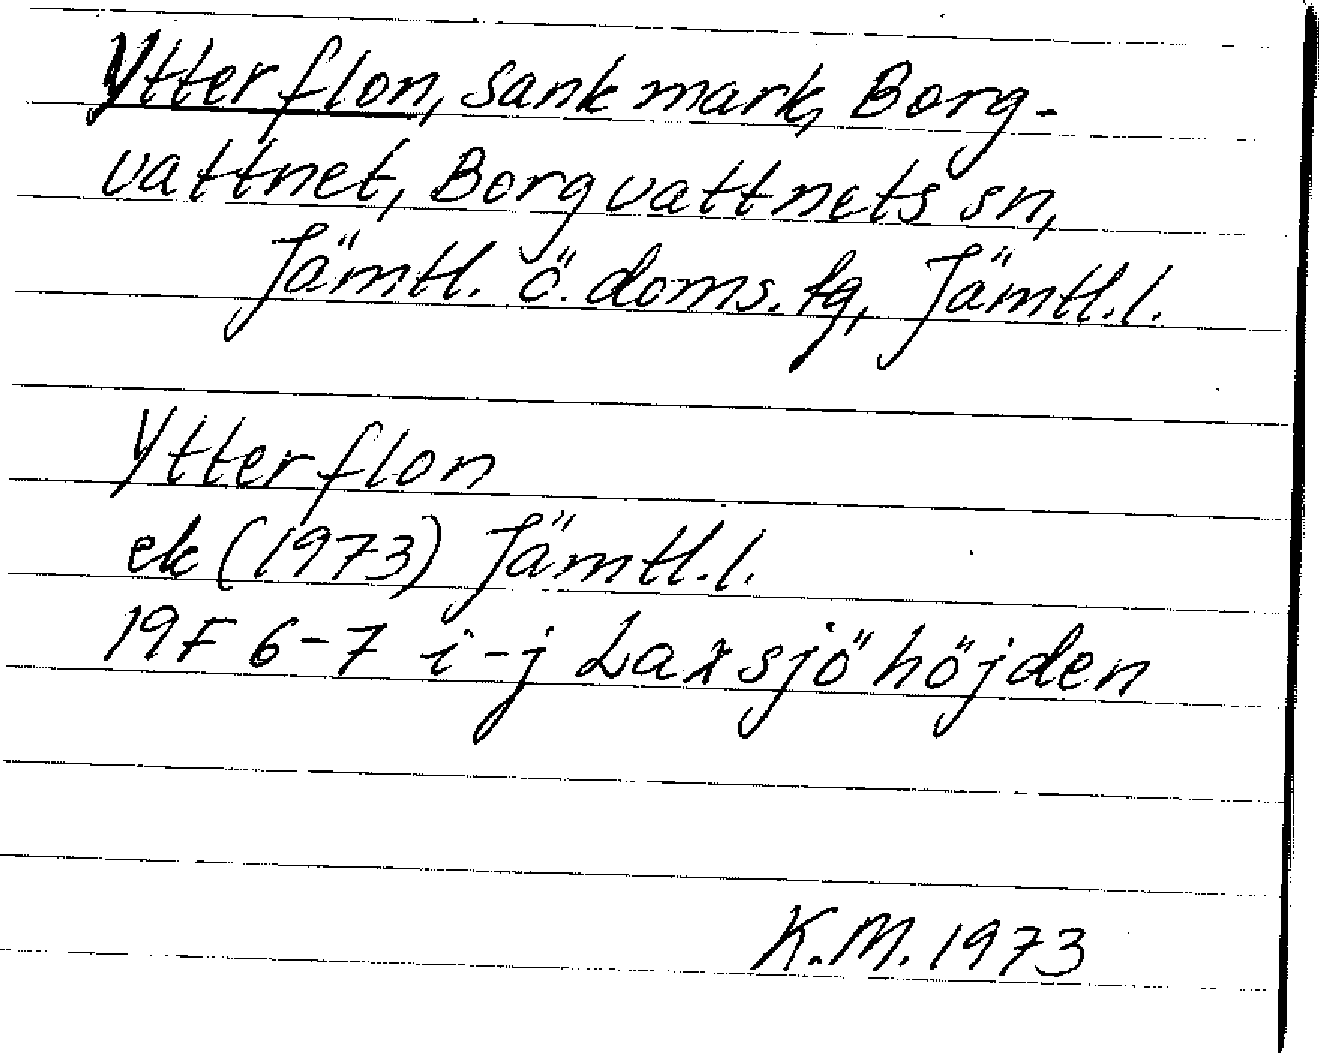 Ytterflon, sank mark, Borg-
vattnet, Borgvattnets sn,
Jämtl. ö. doms. tg, Jämtl. l.
Ytterflon
ek (1973) Jämtl. l.
19F 6-7 i-j Laxsjöhöjden
K.M. 1973